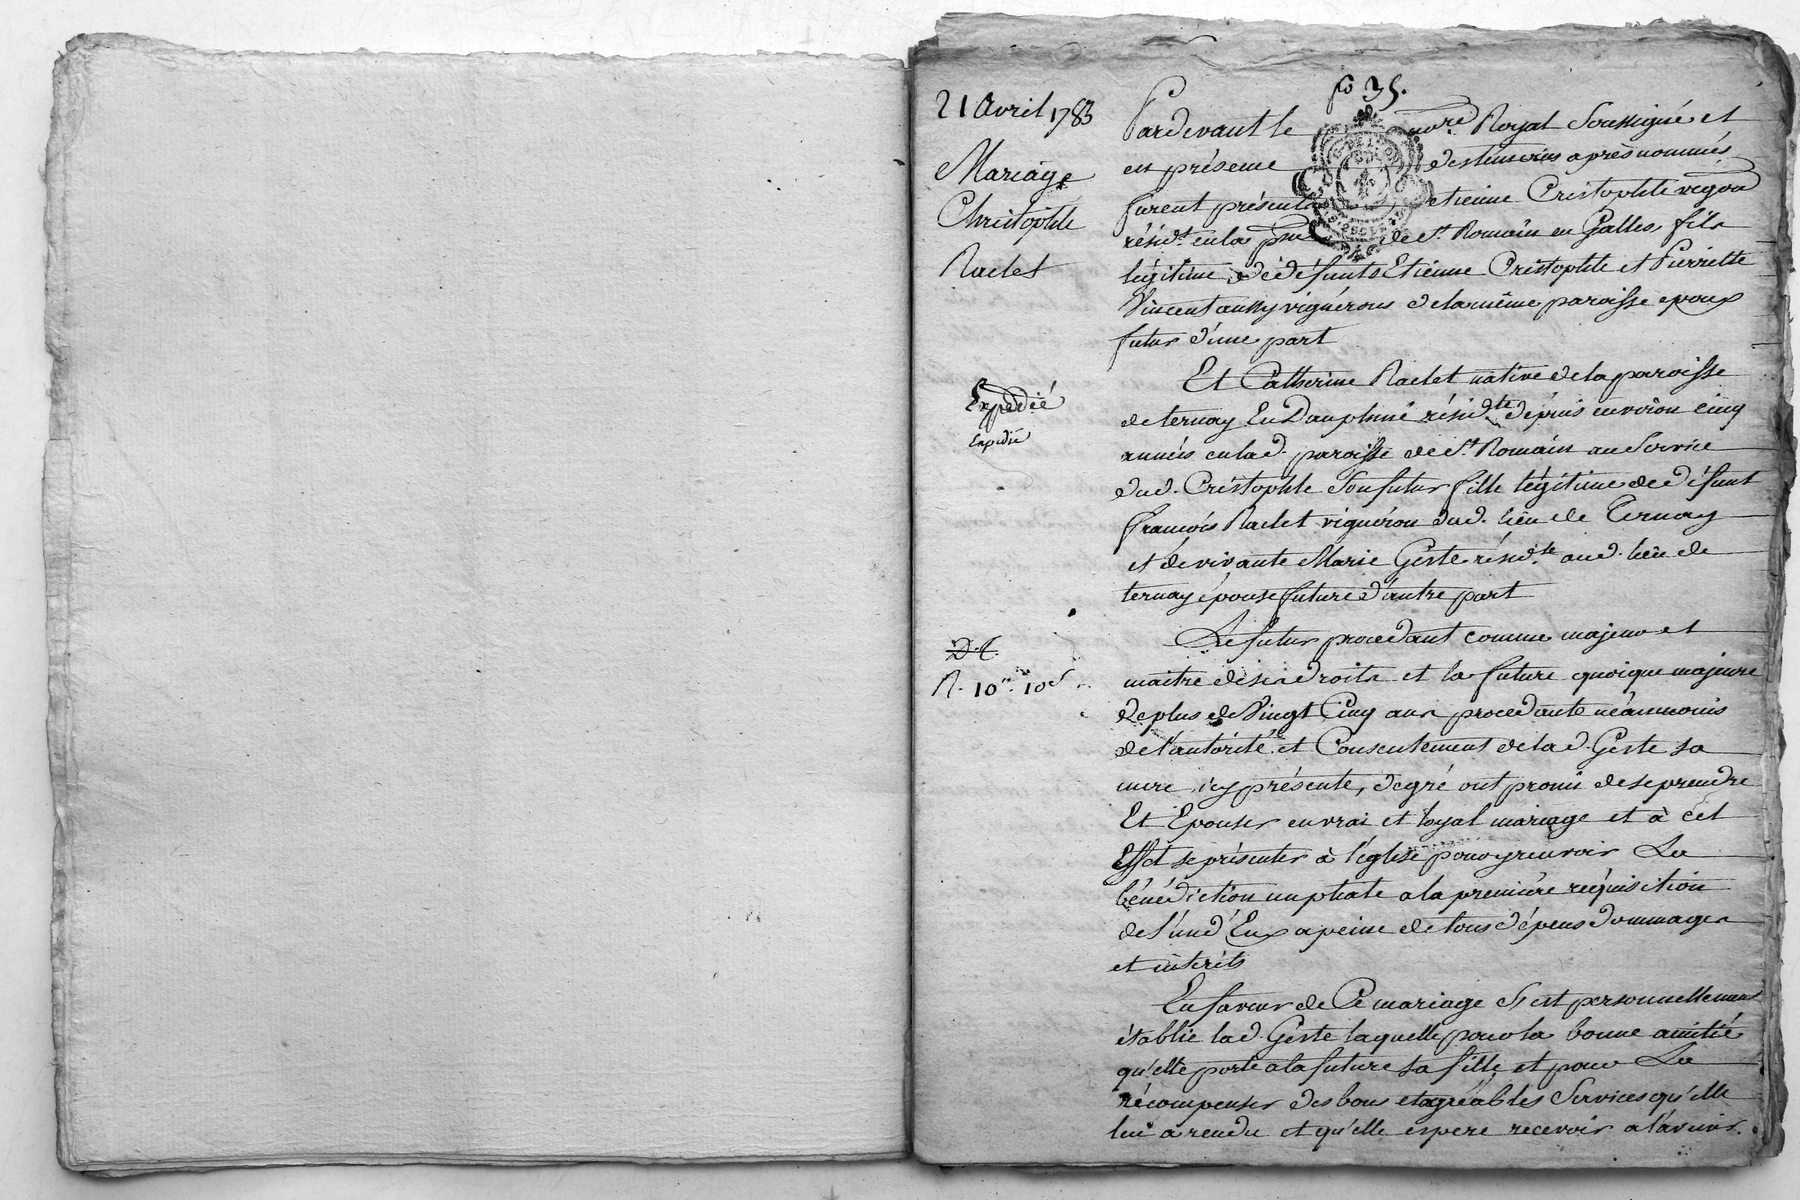 fo 35.
21 Avril 1783
Mariage
Christophle
Raclet
Expédié
Expedié
D. C.
R. 10 ₶ 10 s
Pardevant le nore. Royal Soussigné et
en présence des temoins après nommés
furent présents etienne Cristophle vigon
résidt. en la psse de St. Romain en Galles fils
légitime de défunts Etienne Cristophle et Pierrette
Vincent aussy vignérons de la même paroisse epoux
futur d'une part
Et Catherine Raclet native de la paroisse
de ternay En Dauphiné résidte. dépuis environ cinq
années en lad. paroisse de St. Romain au Service
dud. Cristophle Son futur fille légitime de défunt
françois Raclet vignéron dud. lieu de Ternay
et de vivante Marie Geste résidte. aud. lieu de
ternay épouse future d'autre part
Le futur procedant comme majeur et
maitre de ses droits et la future quoique majeure
de plus de Vingt Cinq ans procedante néanmoins
de l'autorité et Consentement de lad. Geste sa
mere icy présente, de gré ont promis de se prendre
Et Epouser en vrai et loyal mariage et à cet
Effet se présenter à l'église pour y recevoir La
bénédiction nuptiale a la première réquisition
de l'un d'Eux a peine de tous dépens dommages
et intérêts
En faveur de Ce mariage S'est personnellement
établie lad. Geste laquelle pour la bonne amitié
qu'elle porte a la future sa fille et pour La
récompenser des bons et agréables Services qu'elle
lui a rendu et qu'elle espere recevoir a l'avenir.